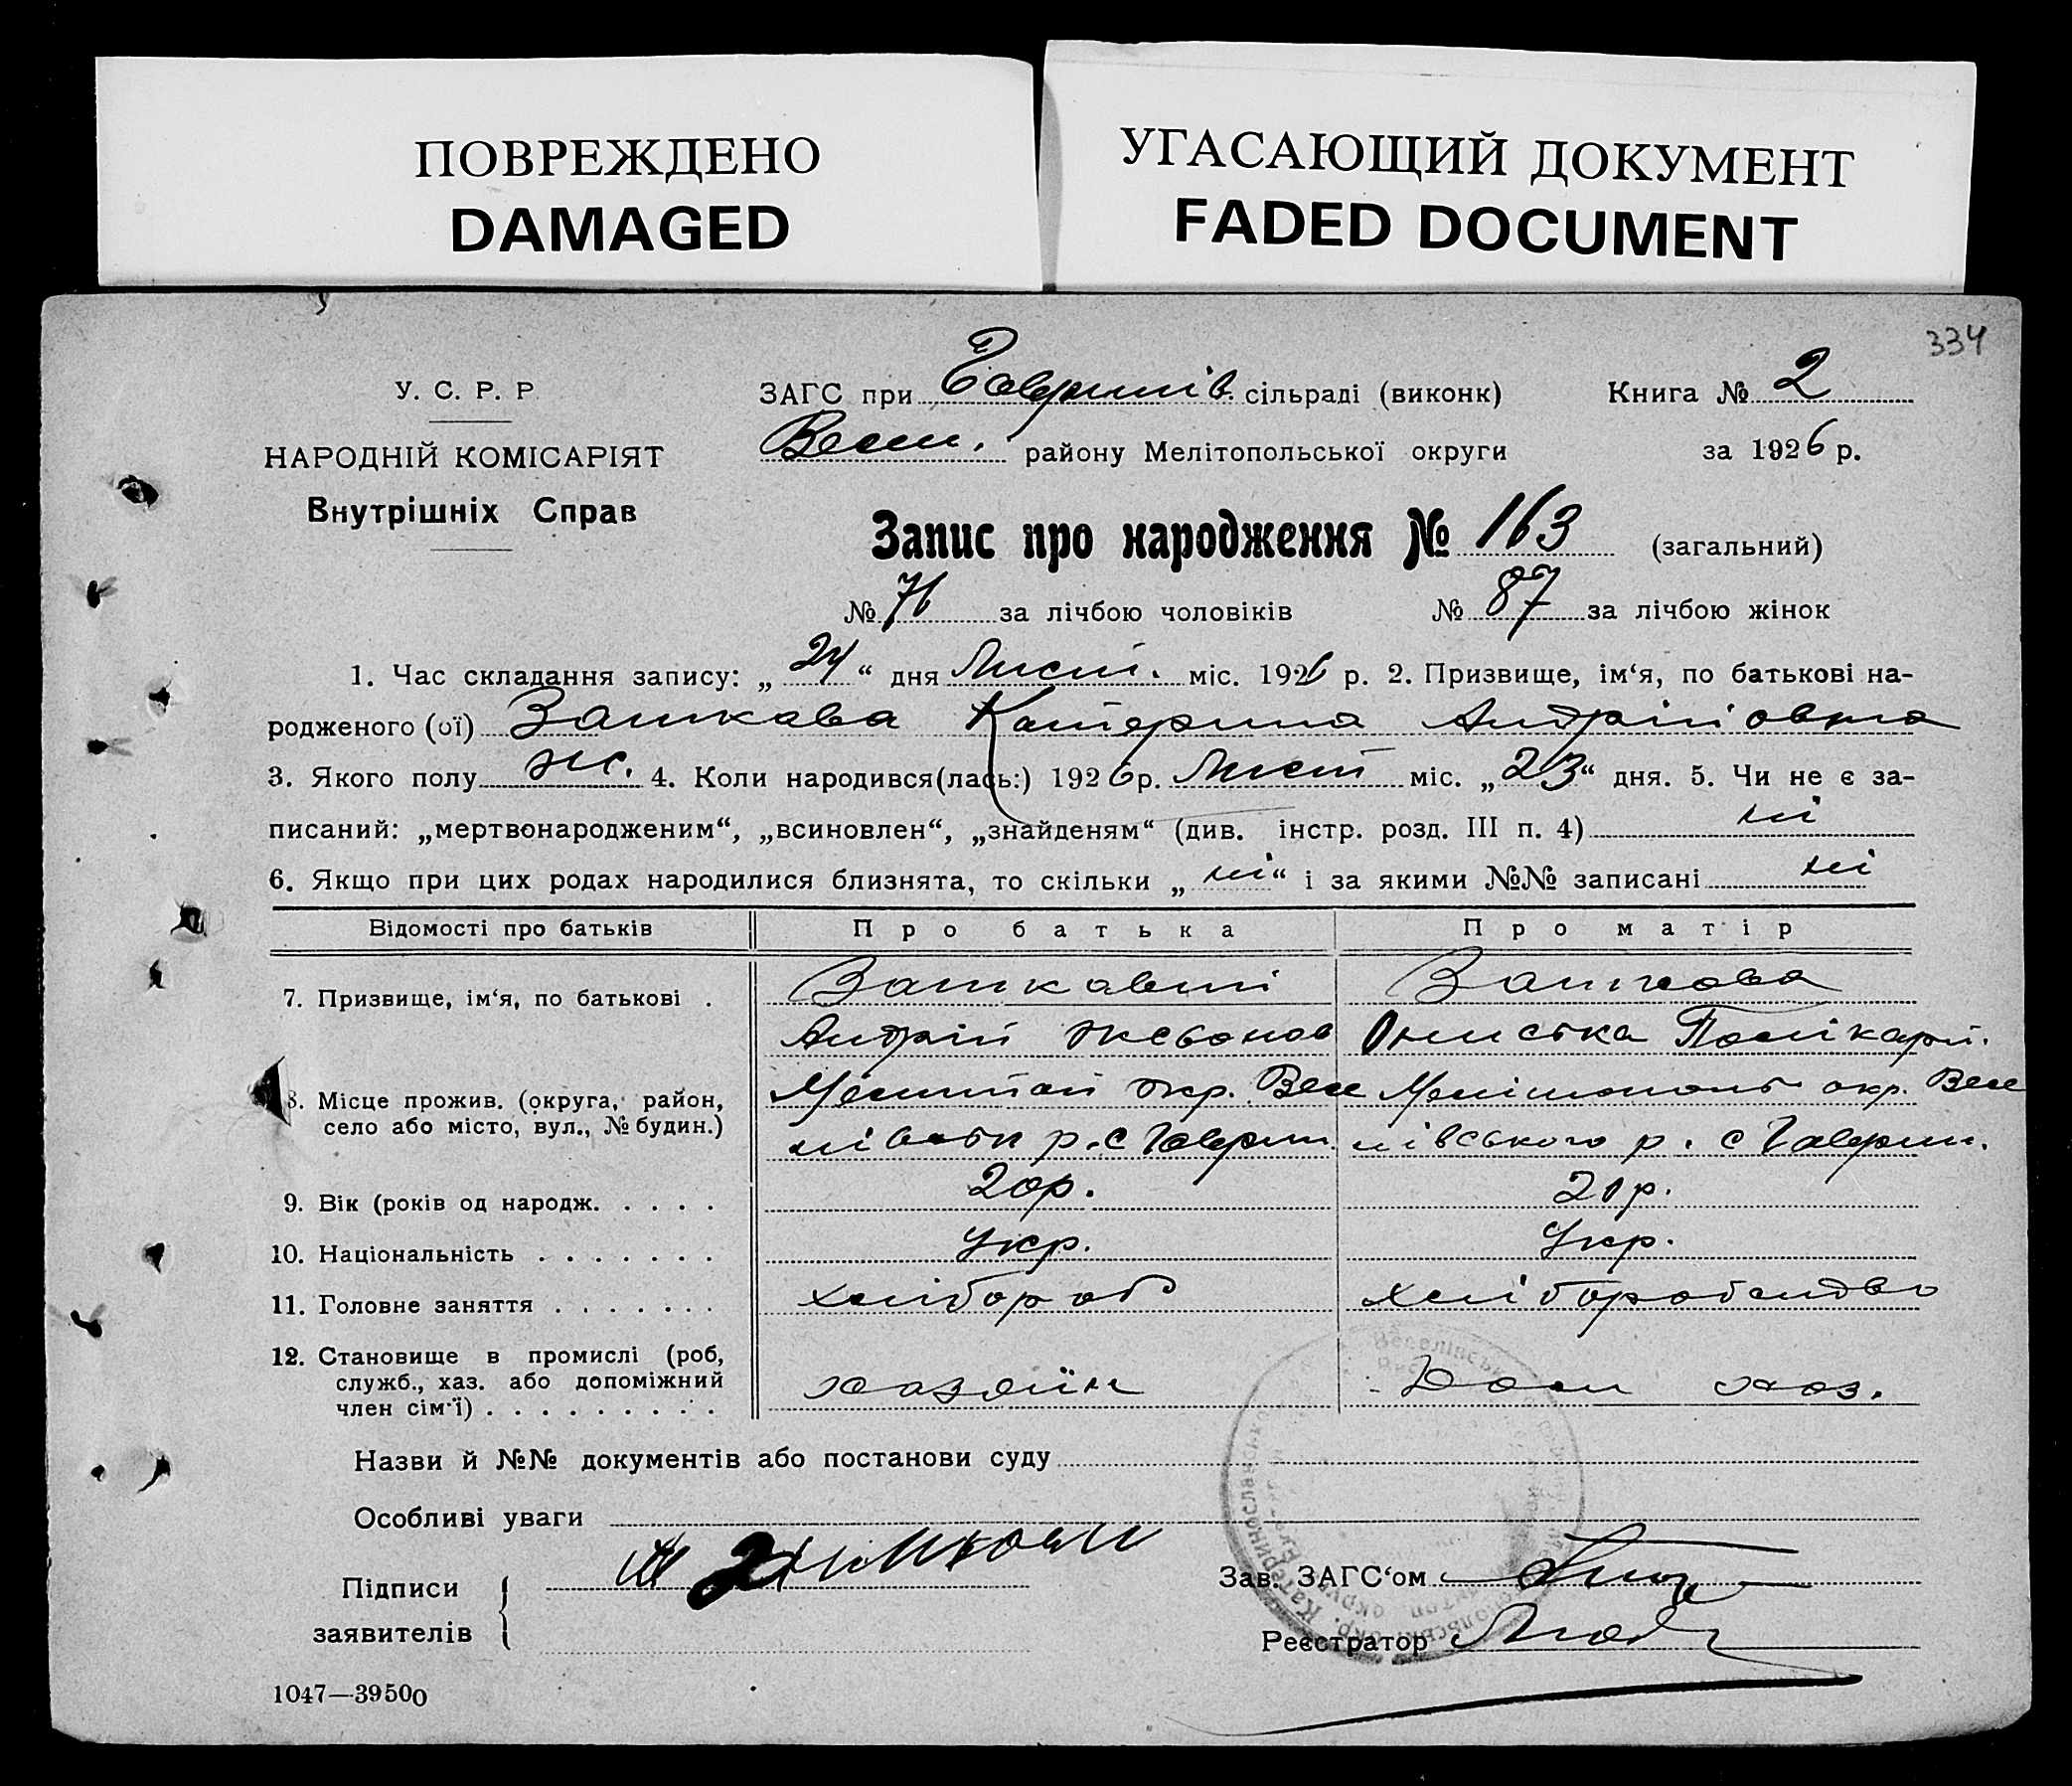 ПОВРЕЖДЕНО
DAMAGED
УГАСАЮЩИЙ ДОКУМЕНТ
FADED DOCUMENT
334
У. С. Р. Р
НАРОДНІЙ КОМІСАРІЯТ
Внутрішніх Справ
ЗАГС при Гаврилів. сільраді (виконк)
Весел. району Мелітопольської округи
Книга № 2
за 1926 р.
Запис про народження № 163 (загальний)
№ 76 за лічбою чоловіків № 87 за лічбою жінок
1. Час складання запису: „ 24 “ дня Лист. міс. 1926 р. 2. Призвище, ім‘я, по батькові на-
родженого (ої) Катерина Андріївна
3. Якого полу жс. 4. Коли народився(лась:) 1926 р. Лист міс. „ 23 “ дня. 5. Чи не є за-
писаний: „мертвонародженим“, „всиновлен“, „знайденям“ (див. інстр. розд. III п. 4) ні
6. Якщо при цих родах народилися близнята, то скільки „ ні “ і за якими №№ записані ні
Відомості про батьків Про батька Про матір
7. Призвище, ім‘я, по батькові .
Андрій Полікарп.
8. Місце прожив. (округа, район, окр. Весе Мелітополь окр. Весе
село або місто, вул., № будин.) р. с Гаврил. лівського р. с Гаврил.
9. Вік (років од народж. . . . . 20р. 21р.
10. Національність . . . . . . . Укр. Укр.
11. Головне заняття . . . . . . . хлібороб
12. Становище в промислі (роб,
служб., хаз. або допоміжний хазяїн Дом хоз.
член сім‘ї) . . . . . . . . .
Назви й №№ документів або постанови суду
Особливі уваги
Підписи
заявителів
Зав. ЗАГС‘ом
Реєстратор
1047—39500